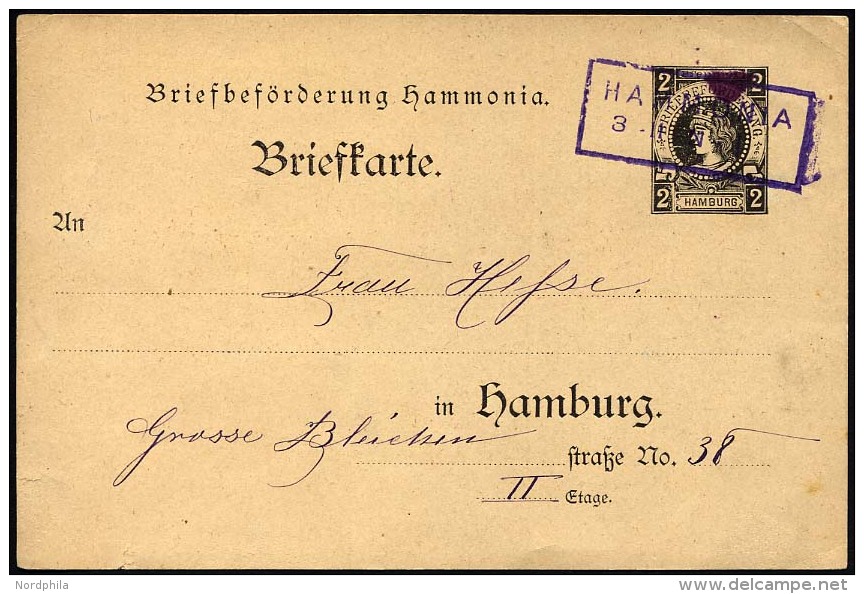 Briefbeförderung Hammonia.
2 2
BRIEFBEFÖRDERUNG.
HA A
3
Briefkarte.
2 HAMBURG. 2
An
Frau Hesse.
in Hamburg.
Grosse Bleichen
straße No. 38
II Etage.
Nordphila
delcampe.net